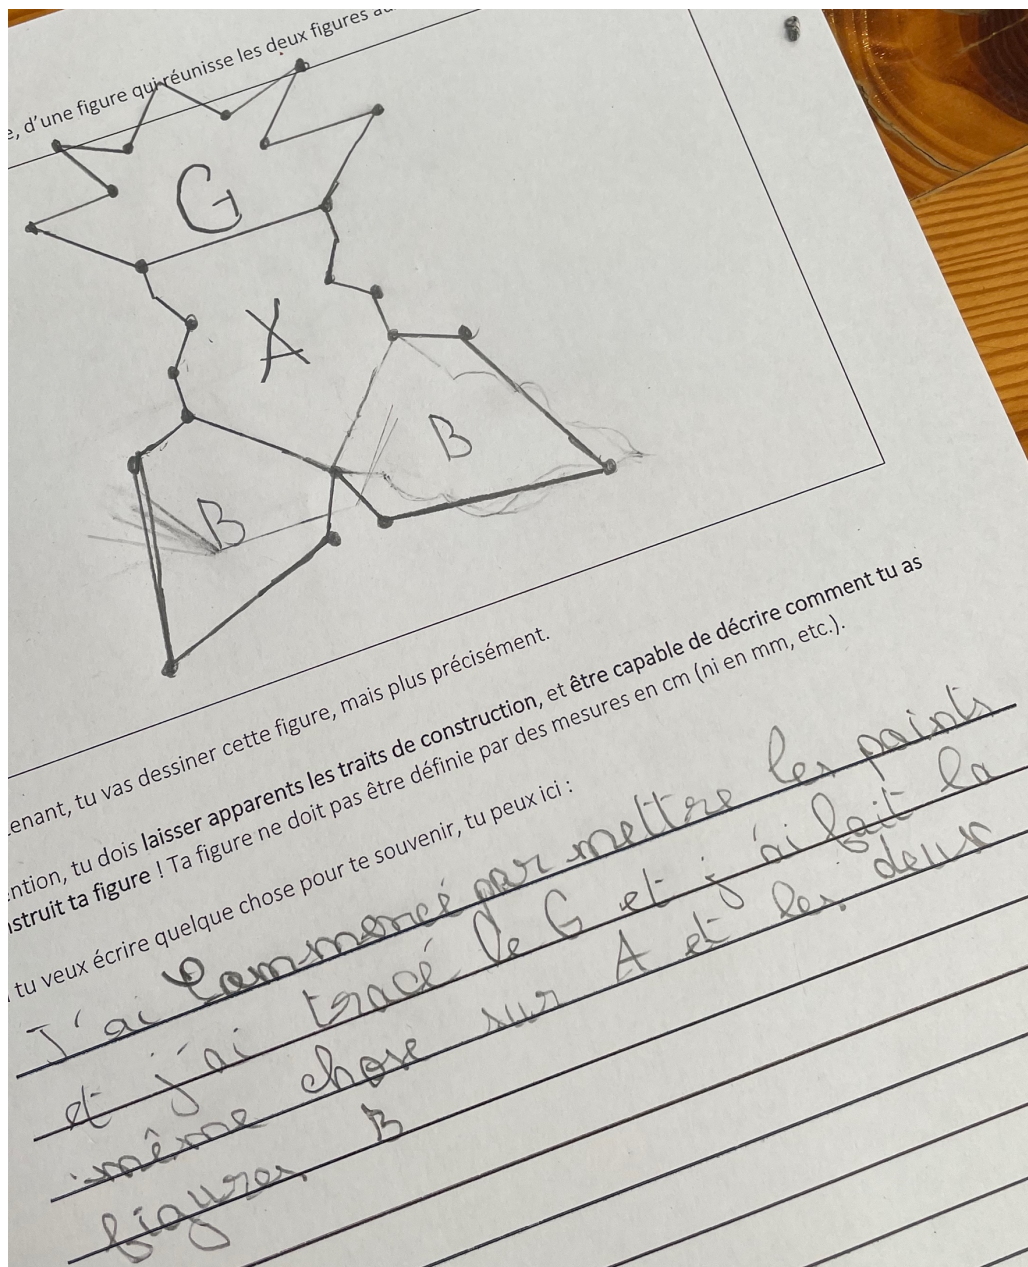 e, d'une figure qui réunisse les deux figures au
G
A
B
B
tenant, tu vas dessiner cette figure, mais plus précisément.
ention, tu dois laisser apparents les traits de construction, et être capable de décrire comment tu as
nstruit ta figure ! Ta figure ne doit pas être définie par des mesures en cm (ni en mm, etc.).
tu veux écrire quelque chose pour te souvenir, tu peux ici :
J'ai Commencé par mettre les points
et j'ai tracé le G et j'ai fait la
même chose sur A et les deux
figures B